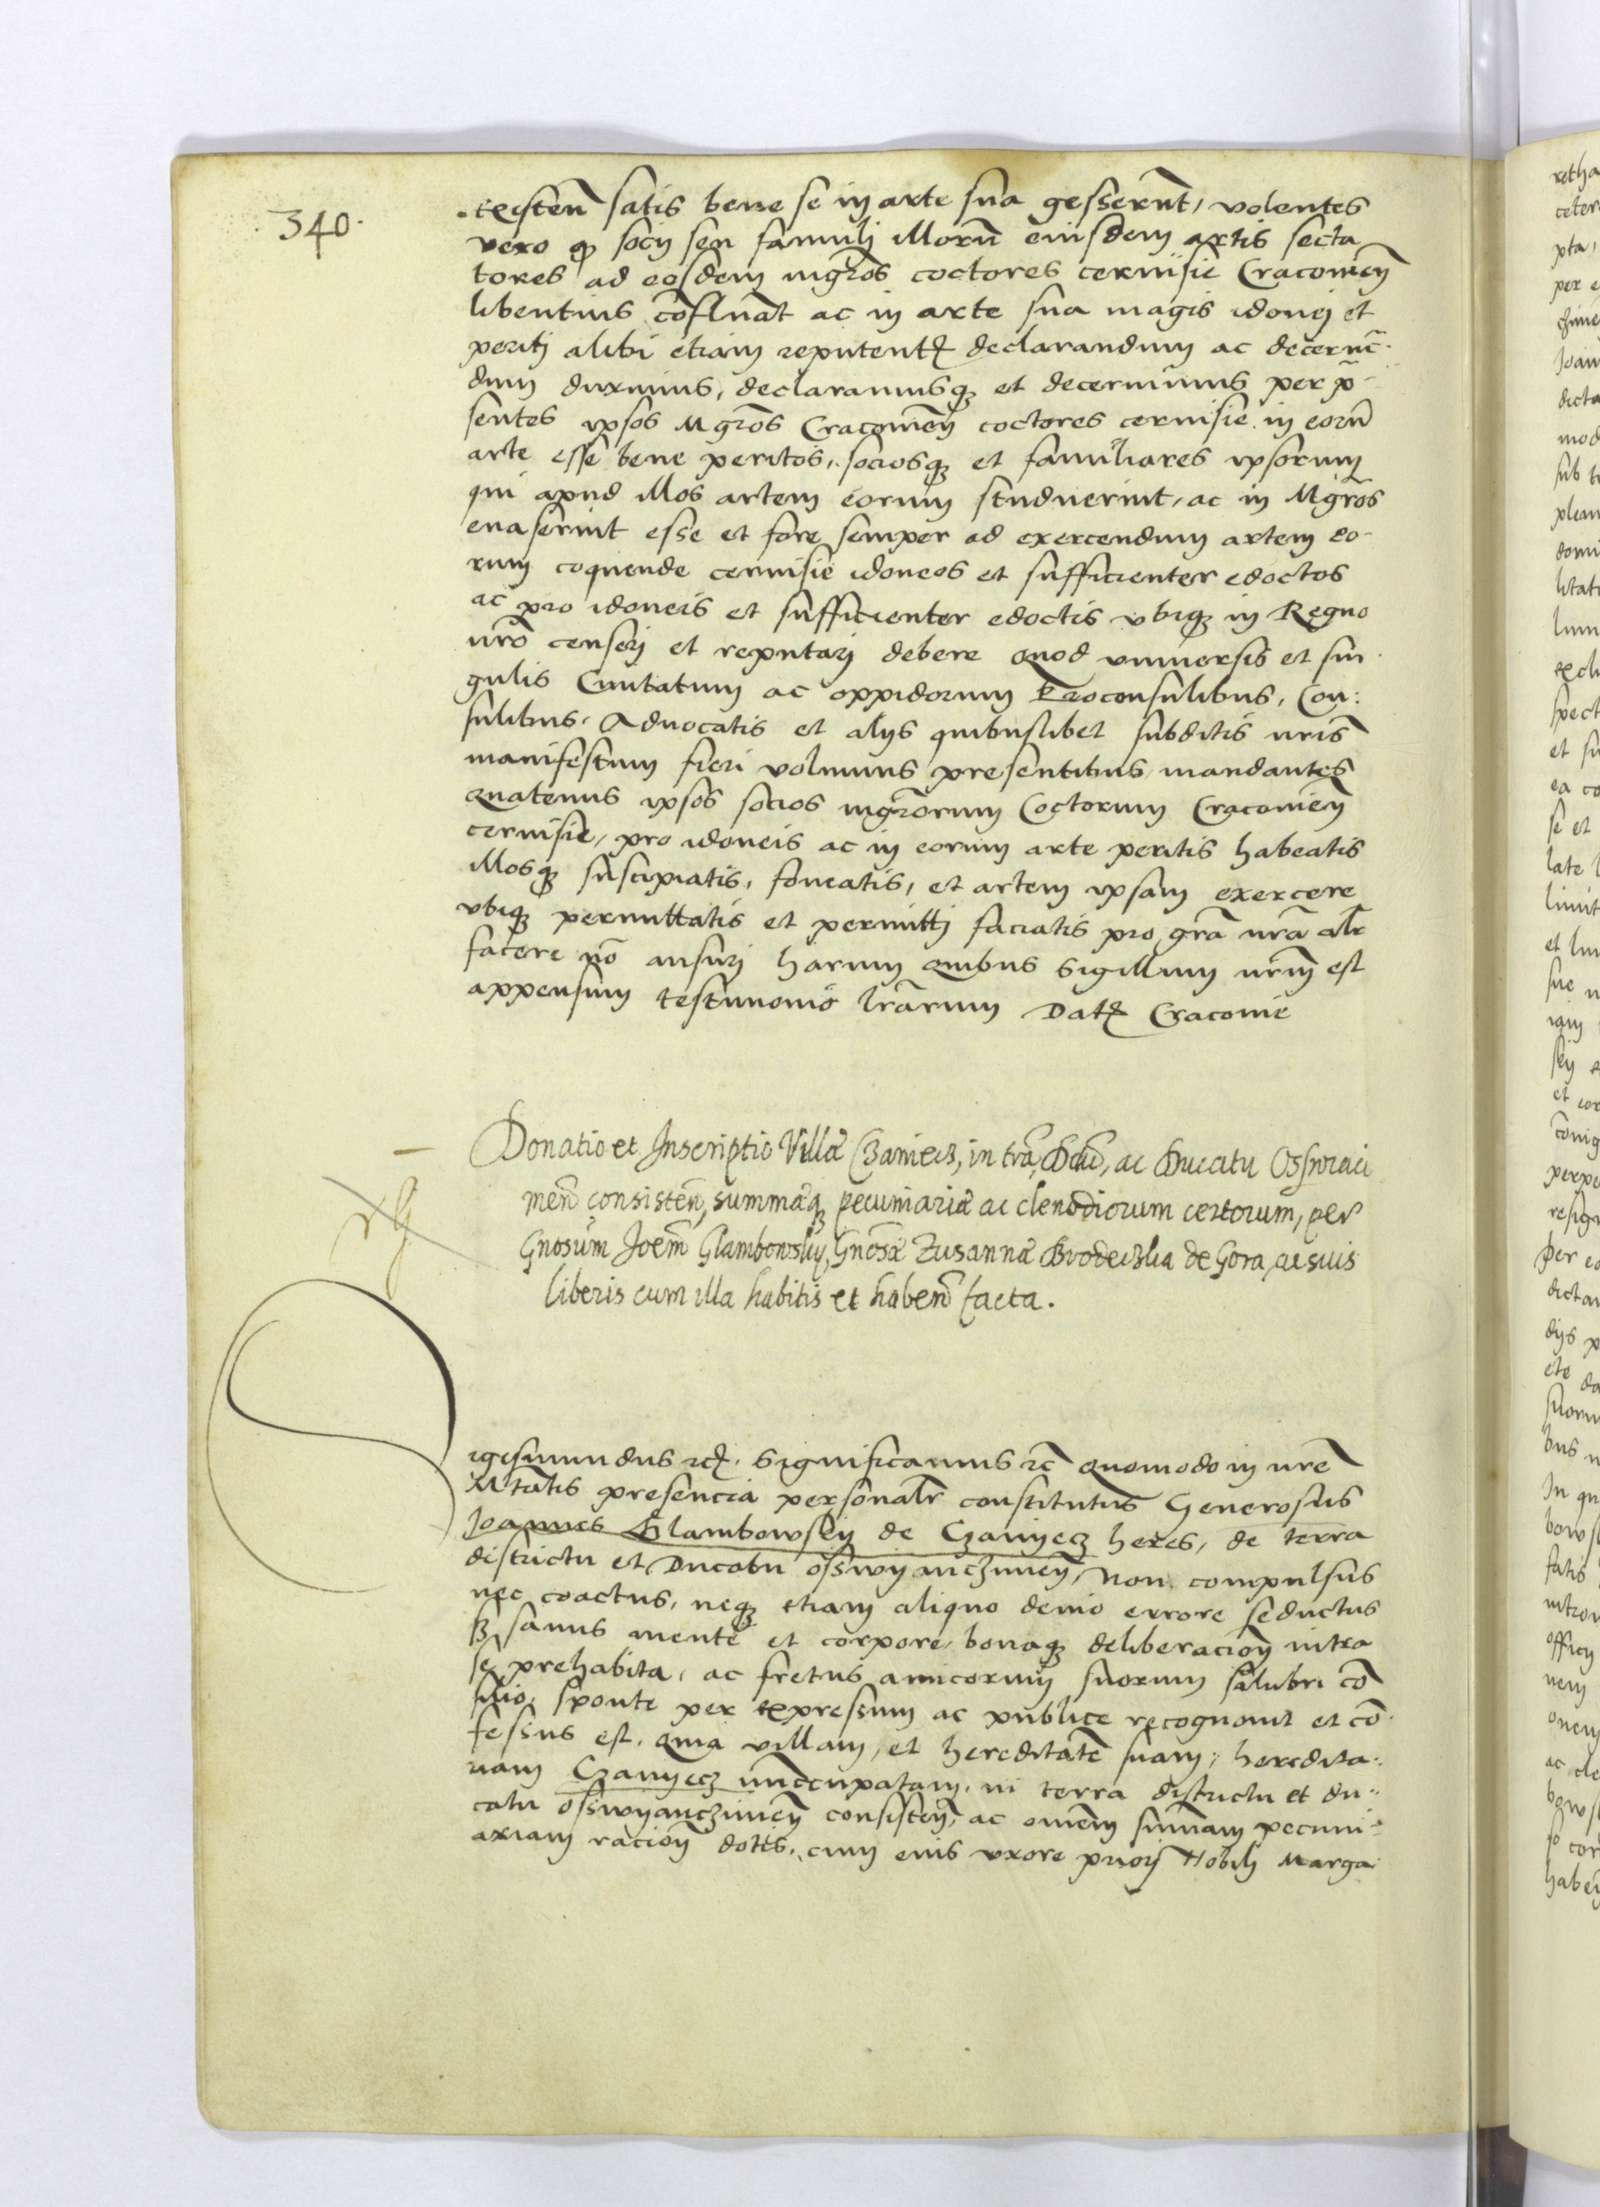 340.
existen̄ satis bene se in arte sua gesserūt, volentes
vero q̄ socij seu famulj illorū eiusdem artis secta
tores ad eosdem mgr̄os coctores cervisie Cracovien̄
libentius cōfluāt ac in arte sua magis idonej et
peritj alibi etiam reputent͛ declarandum ac decernē-
dum duximus, declaramusq; et decernimus per p̄-
sentes ipsos Mgr̄os Cracovien̄ coctores cervisie in eorū
arte esse bene peritos, sociosq; et familiares ipsorum
qui apud illos artem eorum studuerint, ac in Mgr̄os
evaserint esse et fore semper ad exercendum artem eo-
rum coquende cervisie idoneos et sufficienter edoctos
ac pro idoneis et sufficienter edoctis ubiq; in Regno
nr̄o censerj et reputarj debere Quod universis et sin
gulis Civitatum ac oppidorum Proconsulibus, Con:
sulibus, Advocatis et alijs quibuslibet subditis nr̄is
manifestum fieri volumus presentibus mandantes
Quatenus ipsos socios mgr̄orum Coctorum Cracovien̄
cervisie, pro idoneis ac in eorum arte peritis habeatis
illosq; suscipiatis, foveatis, et artem ipsam exercere
ubiq; permittatis et permittj faciatis pro gr̄a nr̄a alr̄
facere nō ausurj harum Quibus Sigillum nr̄m est
appensum testimonio lr̄arum Dat͛ Cracovie
Donatio et Inscriptio Villæ Czaniecz, in tr̄a, Dc̄tu, ac Ducatu Osswiaci
men̄ consisten̄, summæq; pecuniariæ ac clenodiorum certorum, per
Gnosum Joēm Glambowsky, Gnosæ Zusannæ Brodeczka de Gora, ac suis
liberis cum illa habitis et haben̄ facta.
Sigismundus etc͛. Significamus etc̄ Quomodo in nr̄e
Mtātis presencia personalr̄ constitutus Generosus
Joannes Glambowskij de Czanyecz heres, de terra
districtu et Ducatu osswyanczimen̄, non compulsus
nec coactus, neq; etiam aliquo devio errore seductus
sz sanus mente et corpore, bonaq; deliberacion̄ intra
se prehabita, ac fretus amicorum suorum salubri cō
silio, sponte per expressum ac publice recognovit et cō-
fessus est, Quia villam, et hereditatē suam, heredita:
riam Czanyecz nuncupatam, in terra districtu et du:
catu osswyanczimen̄ consisten̄, ac om̄em summam pecuni-
ariam racion̄ dotis, cum eius uxore priorj Nobilj Marga